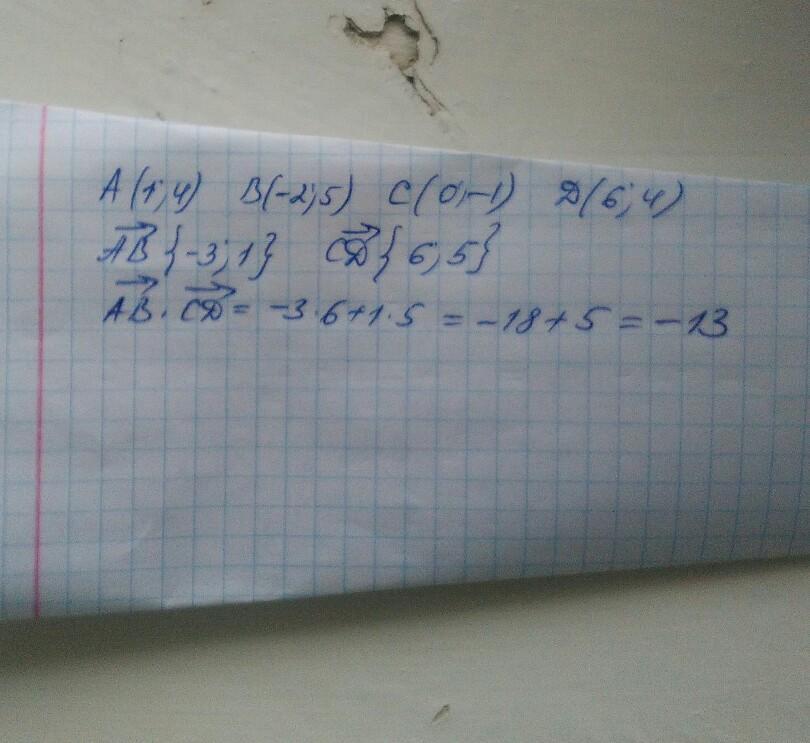 A(1;4) B(-2;5) C(0;-1) D(6;4)
AB{-3;1} CD{6;5}
AB·CD = -3·6+1·5 = -18+5 = -13